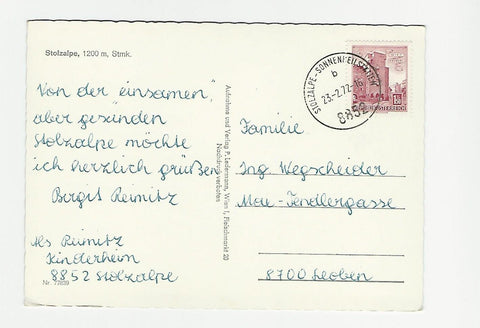 Stolzalpe, 1200 m, Stmk.
Von der einsamen,
aber gesunden
Stolzalpe möchte
ich herzlich grüßen
Birgit Reinitz
Reinitz
Kinderheim
8852 Stolzalpe
Nr. 77839
Aufnahme und Verlag P. Ledermann, Wien I, Fleischmarkt 20
Nachdruck verboten
STOLZALPE-SONNENHEILSTÄTTE
b
23.-2.72-16
8852
Familie
Ing. Wegscheider
Tendlergasse
8700 Leoben